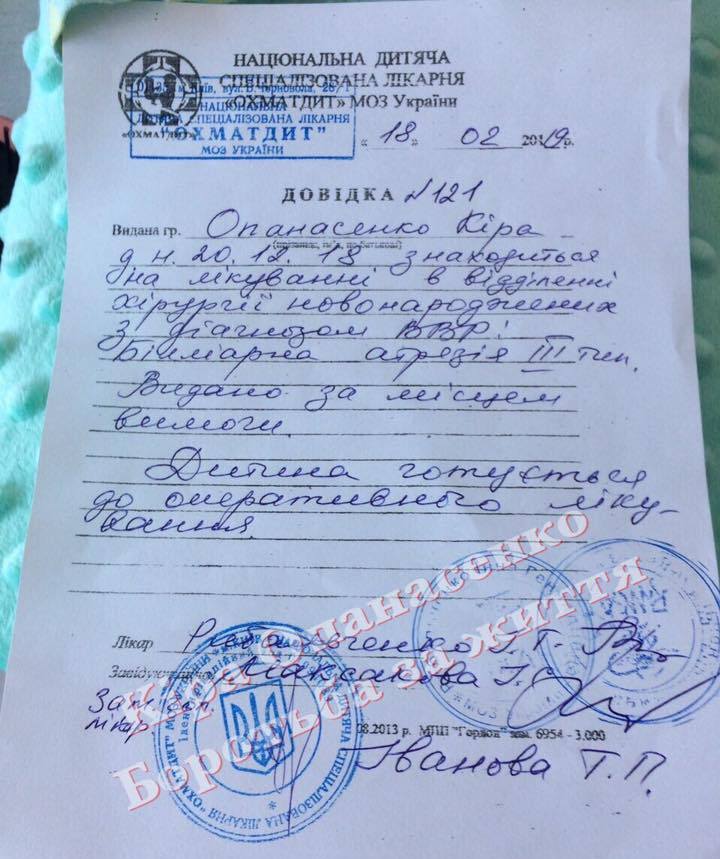 НАЦІОНАЛЬНА ДИТЯЧА
СПЕЦІАЛІЗОВАНА ЛІКАРНЯ
«ОХМАТДИТ» МОЗ України
м. Київ, вул. В. Чорновола, 28/1
НАЦІОНАЛЬНА
ДИТЯЧА СПЕЦІАЛІЗОВАНА ЛІКАРНЯ
"ОХМАТДИТ"
МОЗ УКРАЇНИ
«ОХМАТДИТ»
«18» 02 2019 р.
ДОВІДКА №121
Видана гр. Опанасенко Кіра -
(прізвище, ім'я, по батькові)
д н. 20.12.18 знаходиться
на лікуванні в відділенні
хірургії новонароджених
з діагнозом ВВР:
Біліарна атрезія III тип.
Видано за місцем
вимоги.
Дитина готується
до оперативного ліку-
вання.
Кіра Опанасенко
Боротьба за життя
Лікар
Завідувач Максакова І.С.
Зам. гол.
лікар.
08.2013 р. МПП "Гордон" зам. 6954 - 3.000
Іванова Т.П.